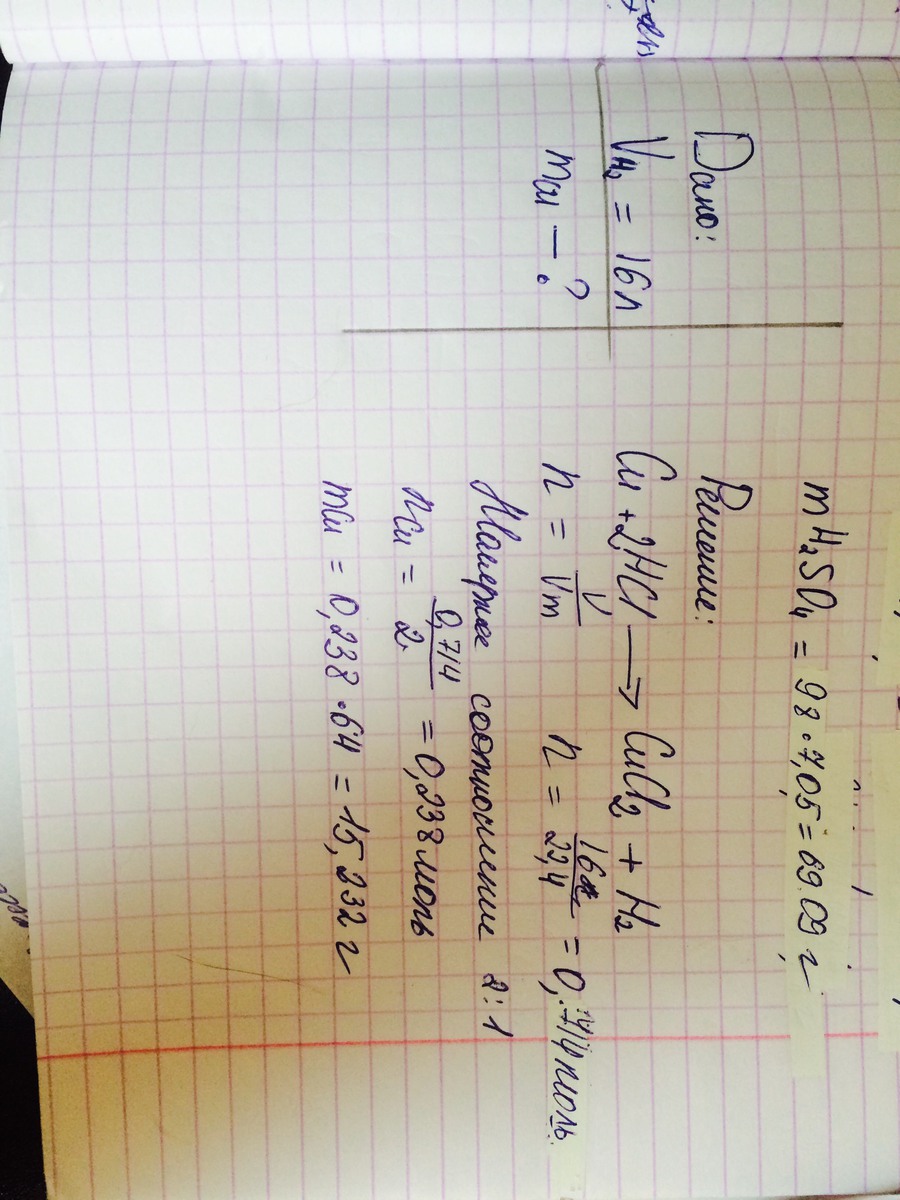 mH₂SO₄ = 98·7,05 = 69.09 г
Дано:
Решение:
V H₂ = 16л
Cu + 2HCl → CuCl₂ + H₂
mCu — ?
n = V/Vm n = 16л/22,4 = 0,714 моль
Малярное соотношении 2:1
nCu = 0,714/2 = 0,238 моль
mCu = 0,238·64 = 15,232 г